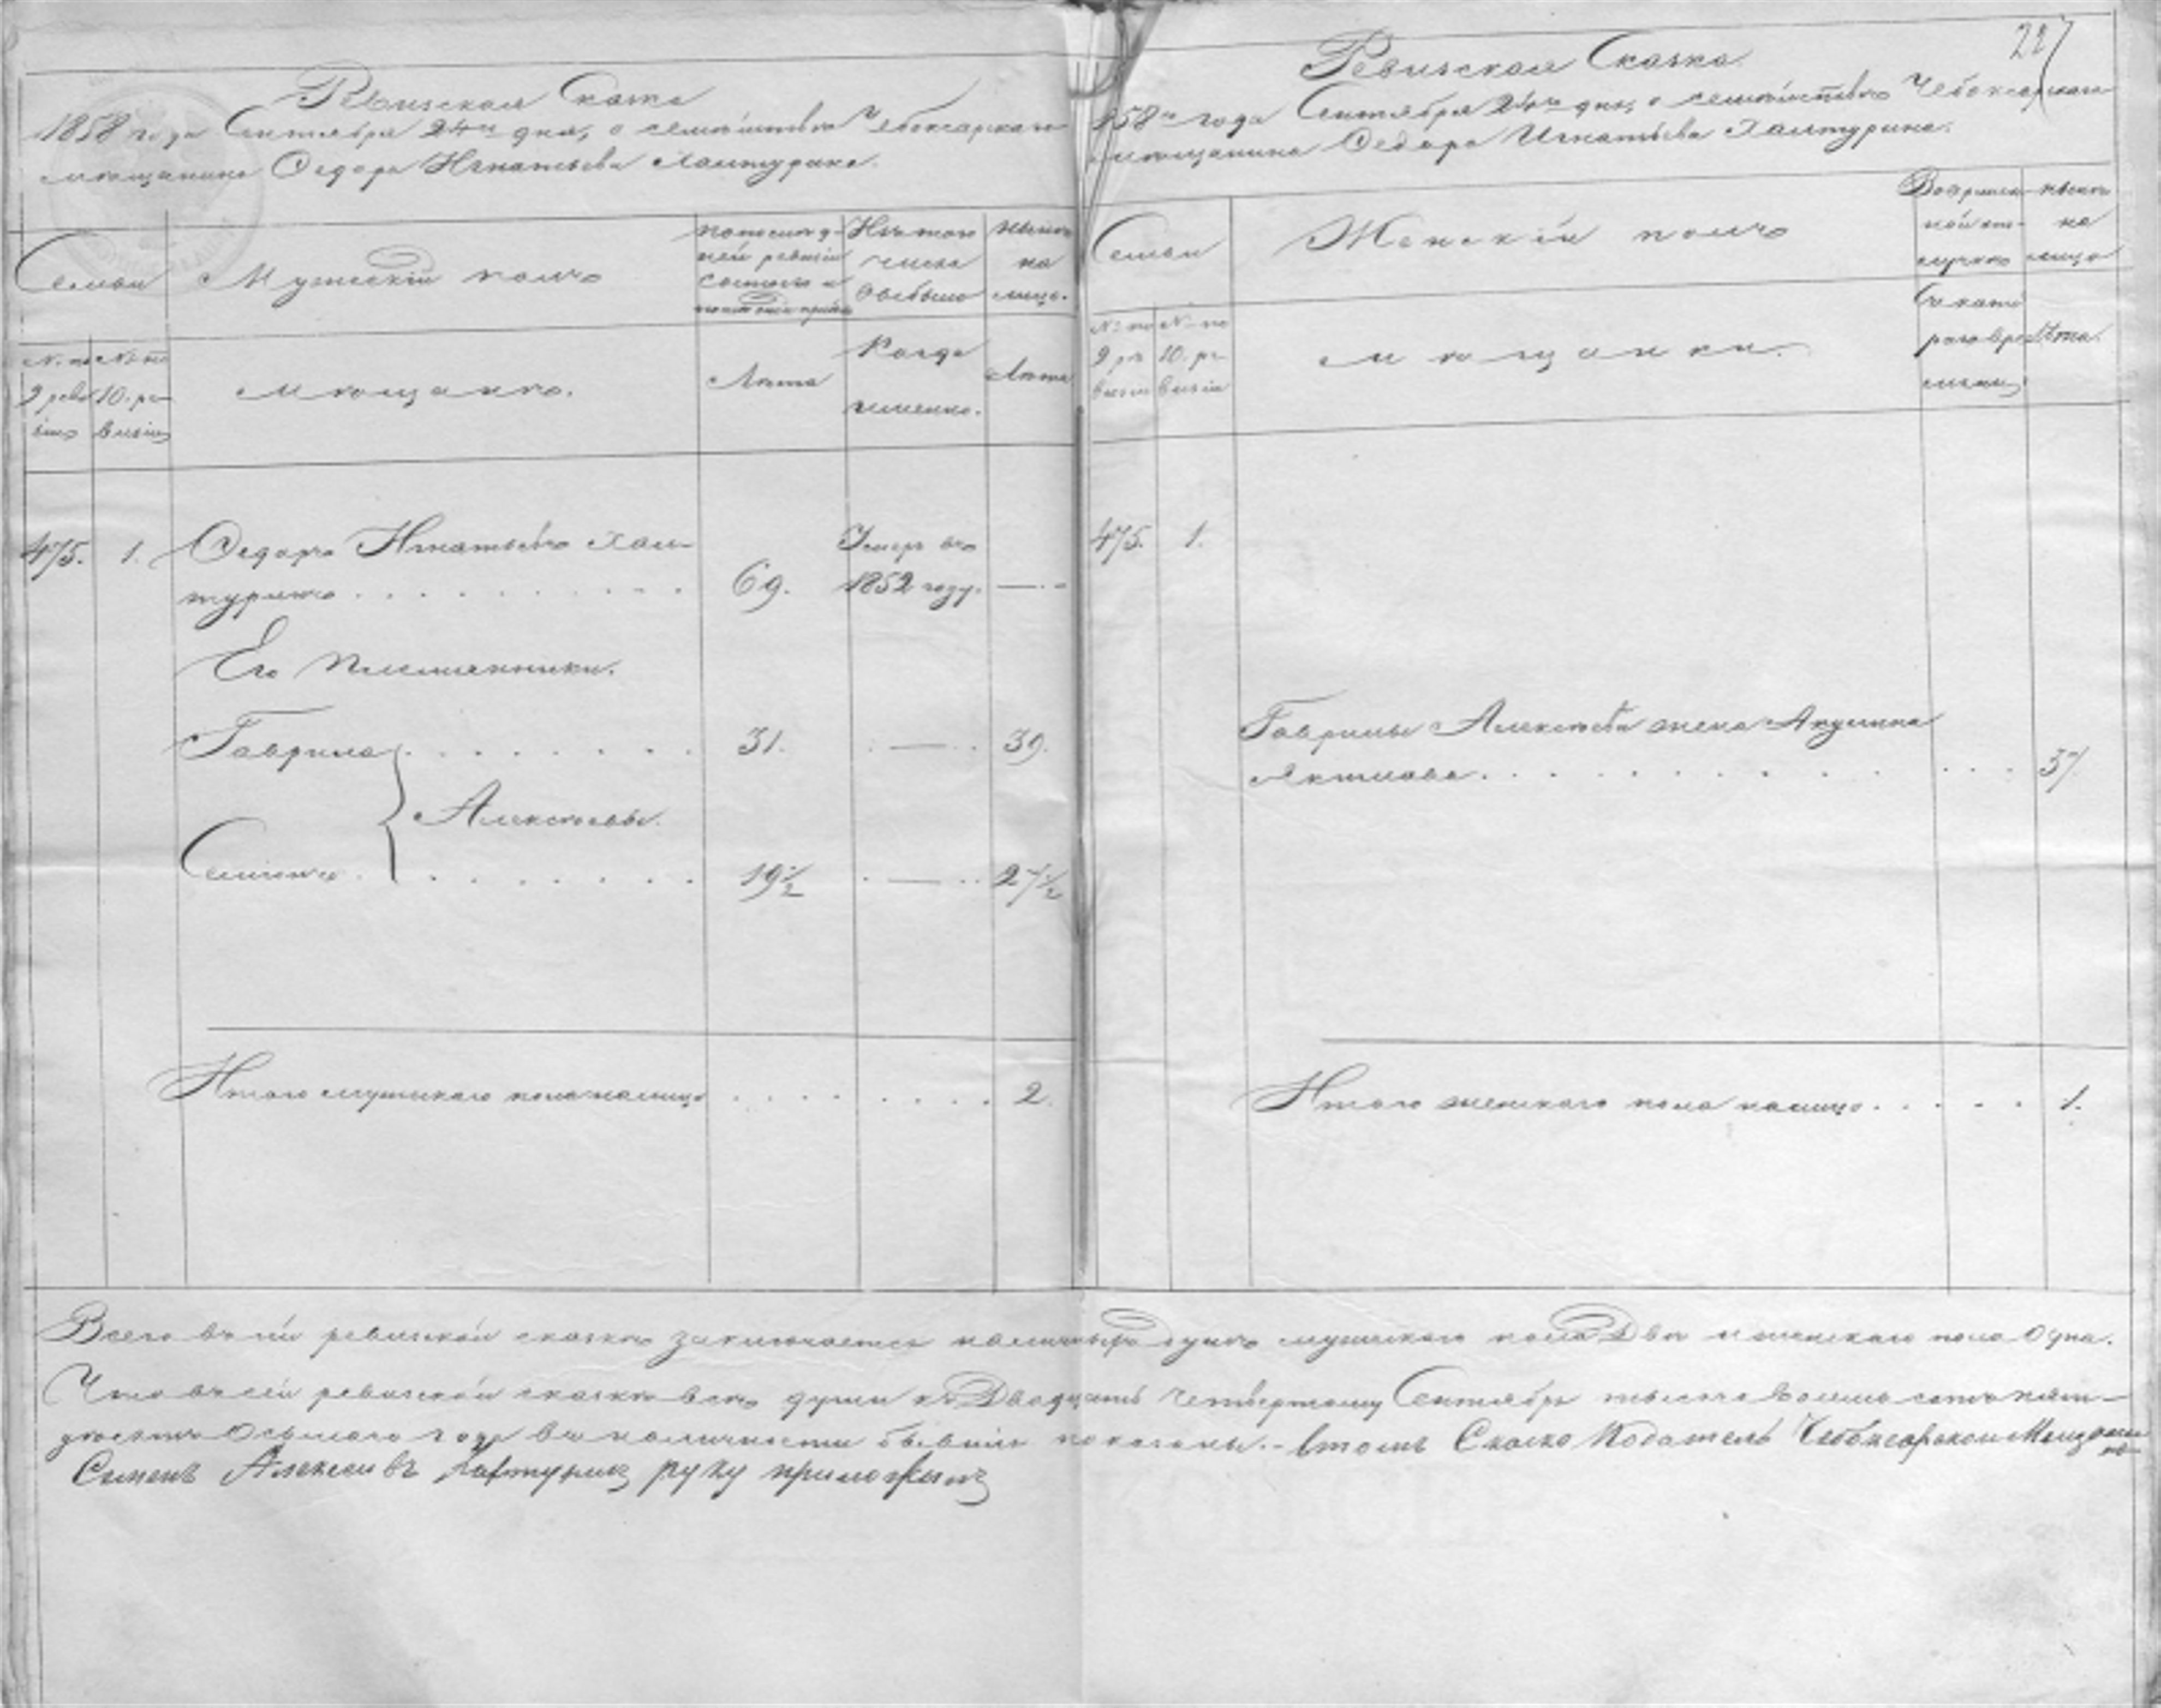 Ревизская Сказка
1858 года Сентября 24го дня, о семействѣ Чебоксарскаго
мѣщанина Ѳедора Игнатьева Халтурина.
Семьи
Мужескій полъ
По послѣдней ревизіи состояло и послѣ того прибыло
Изъ того числа выбыло
Нынѣ на лицо.
№ по 9 ревизіи
№ по 10 ревизіи
мѣщане.
Лѣта
Когда именно.
Лѣта
475. 1. Ѳедоръ Игнатьевъ Хал-
туринъ . . . . . . . . . 69. Умеръ въ 1852 году. —
Его племянники.
Гаврила . . . . . . . 31. — 39.
Алексѣевы.
Семенъ . . . . . . . 19½ — 27½
Итого мужескаго пола налицо . . . . . . . . 2.
227
Ревизская Сказка
1858го года Сентября 24го дня, о семействѣ Чебоксарскаго
мѣщанина Ѳедора Игнатьева Халтурина.
Семьи
Женскій полъ
Во временной отлучкѣ
Нынѣ на лицо
№ по 9 ревизіи
№ по 10 ревизіи
мѣщанки.
Съ котораго времени
Лѣта.
475. 1.
Гаврилы Алексѣева жена Акулина
. . . . . . . . . . . . 37.
Итого женскаго пола налицо . . . . . 1.
Всего въ сей ревизской сказкѣ заключается наличныхъ душъ мужескаго пола Двѣ и женскаго пола Одна.
Что въ сей ревизской сказкѣ всѣ души къ Двадцать четвертому Сентября тысяча восемь сотъ пять-
десятъ Осьмаго года въ наличности бывшія показаны. - Къ сей Сказкѣ Податель Чебоксарской Мещани
нъ
Семенъ Алексеивъ Халтуринъ руку приложилъ